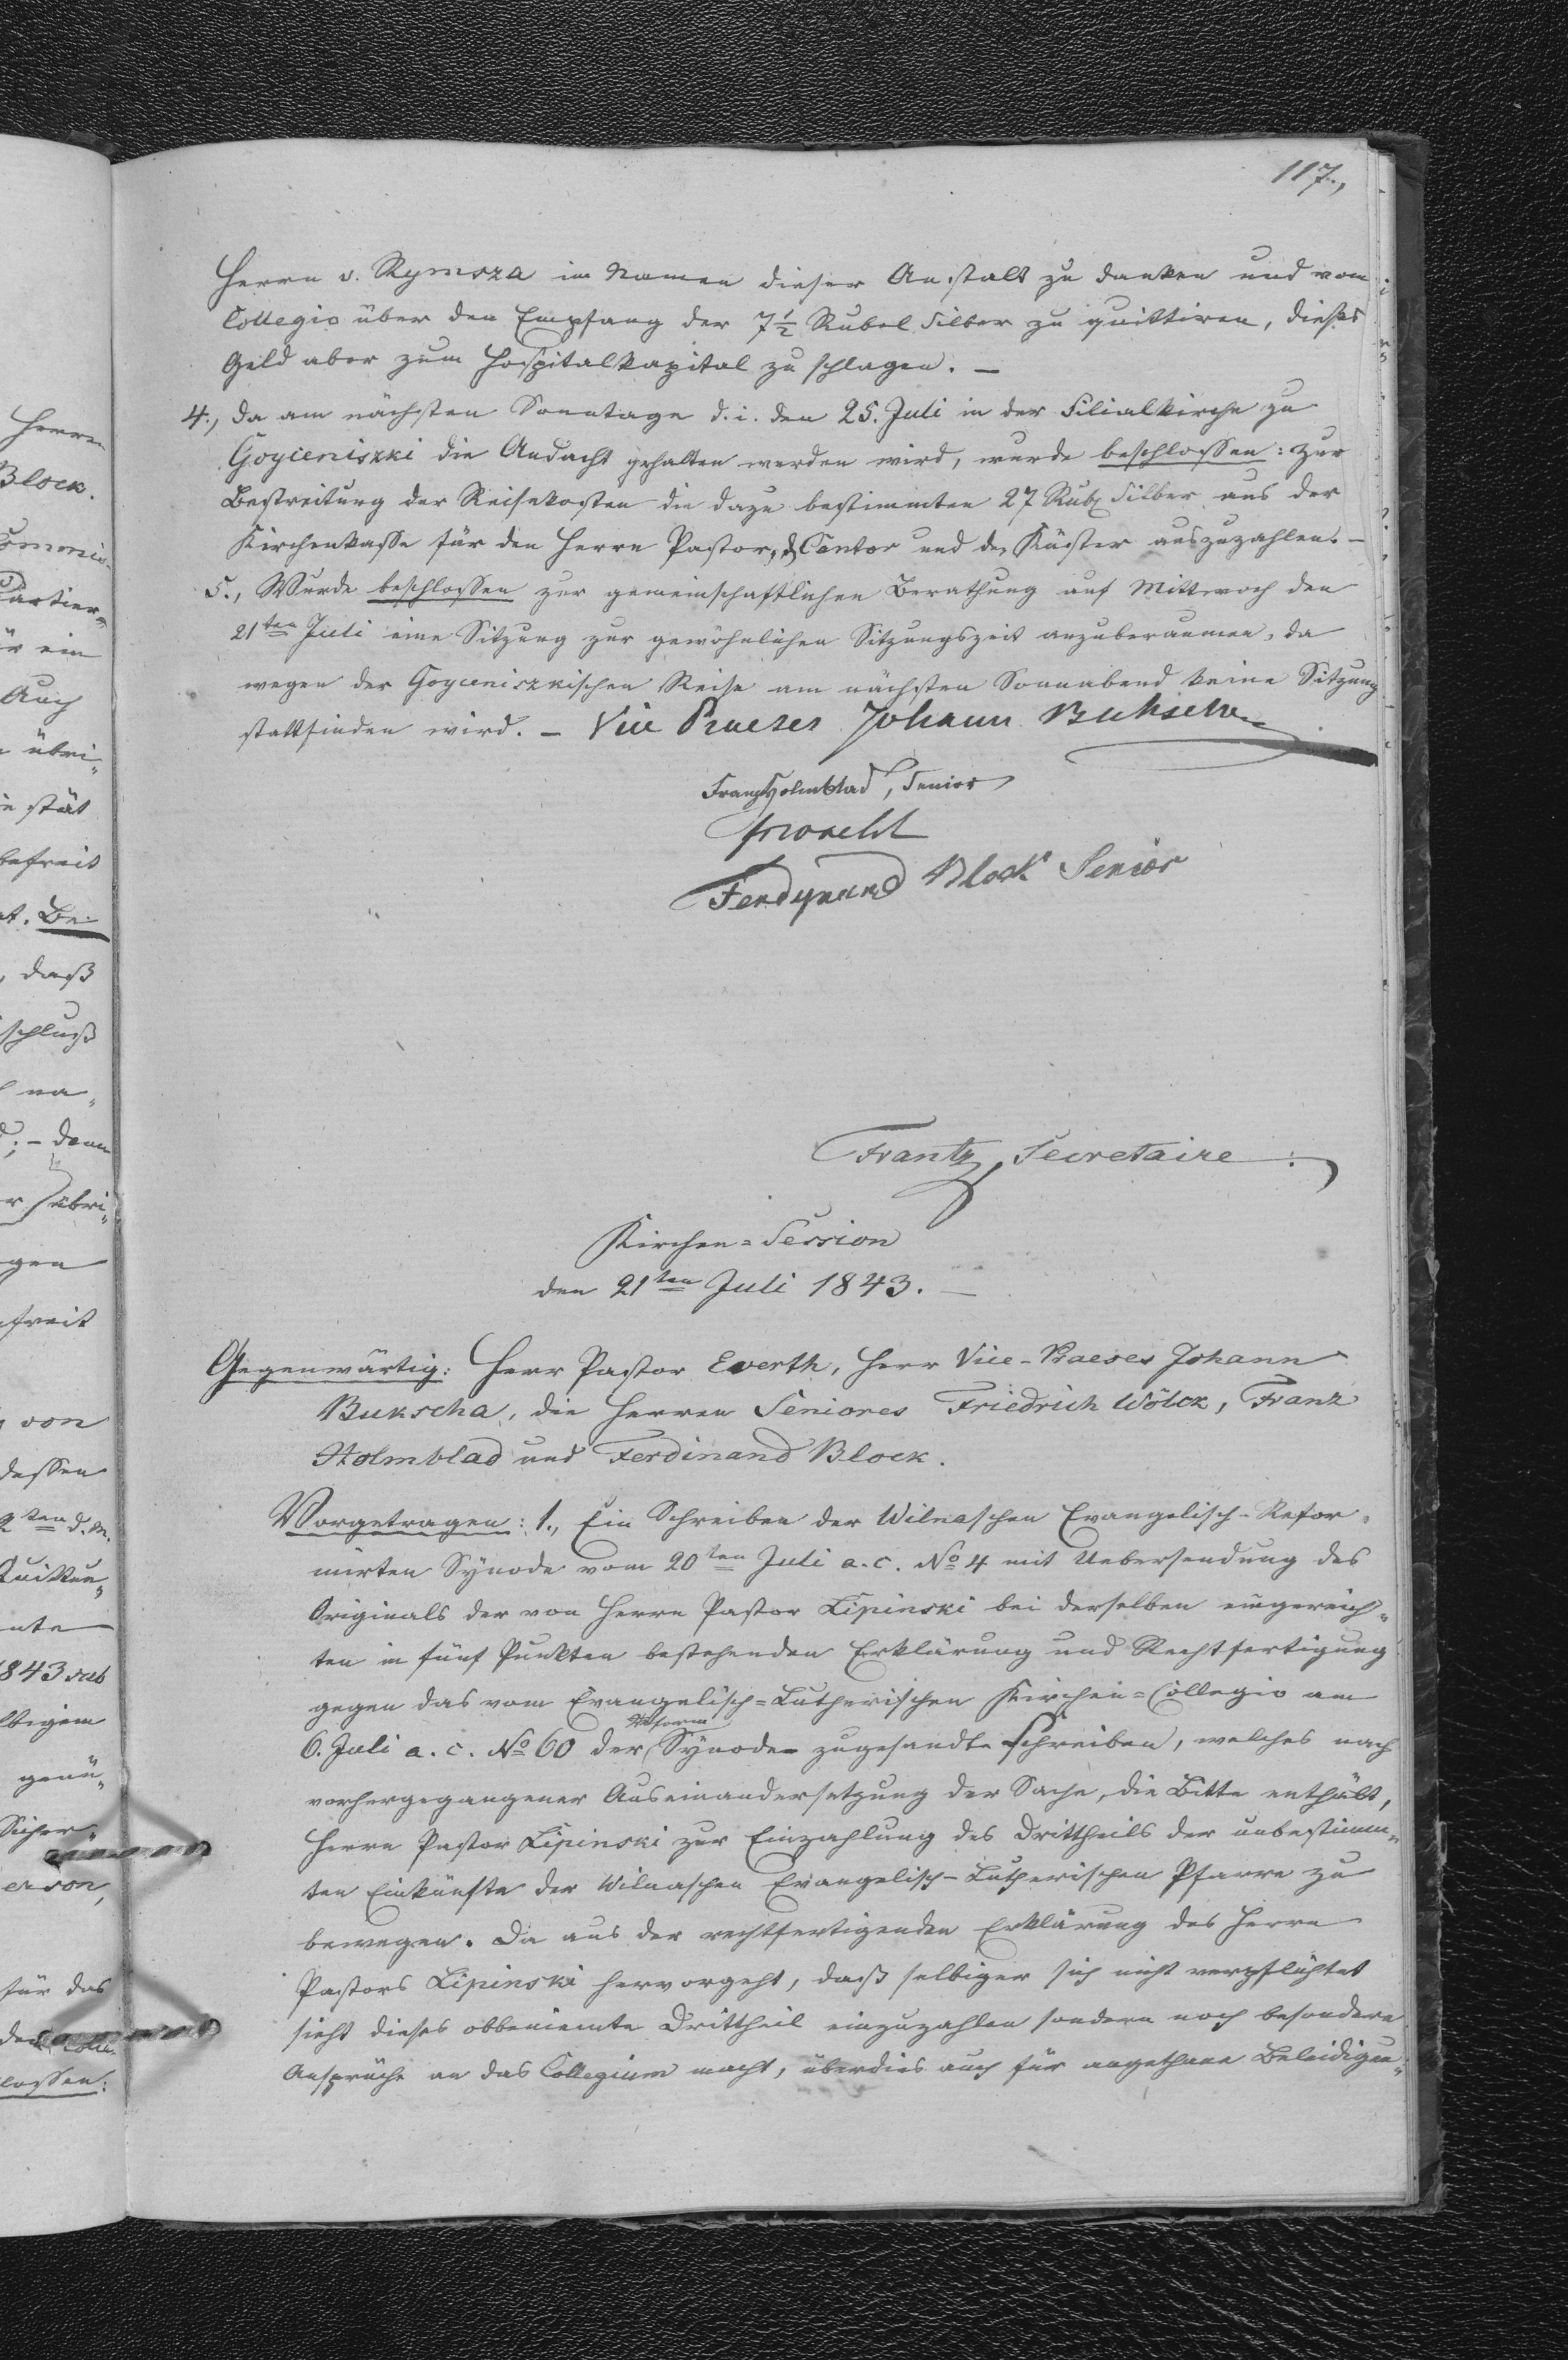 117.,
Herrn v. Rymsza im Namen dieser Anstalt zu danken und vom
Collegio über den Empfang der 7½ Rubel Silber zu quittiren, dieses
Geld aber zum Hospitalkapital zu schlagen. —
4., Da am nächsten Sonntage d. i. den 25. Juli in der Filialkirche zu
Goyieniszki die Andacht gehalten werden wird, wurde beschlossen: zur
Bestreitung der Reisekosten die dazu bestimmten 27 Rub Silber aus der
Kirchenkasse für den Herrn Pastor, Cantor und den Küster auszuzahlen. —
5., Wurde beschlossen zur gemeinschaftlichen Berathung auf Mittwoch den
21ten Juli eine Sitzung zur gewöhnlichen Sitzungszeit anzuberaumen, da
wegen der Goyieniszkischen Reise am nächsten Sonnabend keine Sitzung
stattfinden wird. — Vice Praeses Johann Bukscha
Franz Holmblad, Senior
Ferdynand Block Senior
Frantz, Secretaire.
Kirchen-Session
den 21ten Juli 1843. —
Gegenwärtig: Herr Pastor Everth, Herr Vice-Praeses Johann
Bukscha, die Herren Seniores Friedrich Wölck, Franz
Holmblad und Ferdinand Block.
Vorgetragen: 1., Ein Schreiben der Wilnaschen Evangelisch-Refor-
mirten Synode vom 20ten Juli a. c. No 4 mit Uebersendung des
Originals der von Herrn Pastor Lipinski bei derselben eingereich-
ten in fünf Punkten bestehenden Erklärung und Rechtfertigung
gegen das vom Evangelisch-Lutherischen Kirchen-Collegio am
6. Juli a. c. No 60 der Reform Synode zugesandte Schreiben, welches nach
vorhergegangener Auseinandersetzung der Sache, die Bitte enthält,
Herrn Pastor Lipinski zur Einzahlung des Drittheils der unbestimm-
ten Einkünfte der Wilnaschen Evangelisch-Lutherischen Pfarre zu
bewegen. Da aus der rechtfertigenden Erklärung des Herrn
Pastors Lipinski hervorgeht, daß selbiger sich nicht verpflichtet
sieht dieses obbenienite Drittheil einzuzahlen sondern noch besondere
Ansprüche an das Collegium macht, überdies auch für angethane Beleidigun-